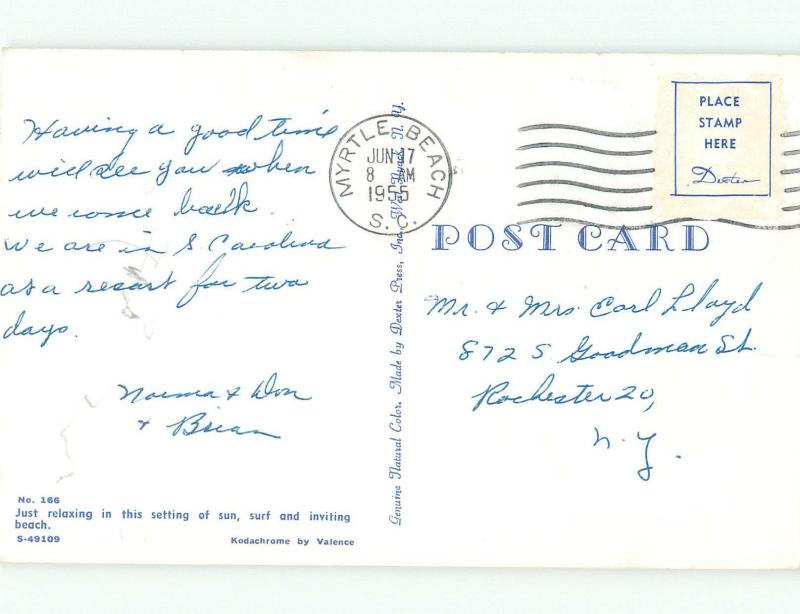 Having a good time
will see you when
we come back.
We are in S Carolina
at a resort for two
days.
Norma & Don
& Brian
No. 166
Just relaxing in this setting of sun, surf and inviting
beach.
S-49109
Kodachrome by Valence
Genuine Natural Color. Made by Dexter Press, Inc. West Nyack, N. Y.
MYRTLE BEACH
JUN 17
8 AM
1955
S. C.
PLACE
STAMP
HERE
Dexter
POST CARD
Mr. & Mrs. Carl Lloyd
872 S. Goodman St.
Rochester 20,
N. Y.